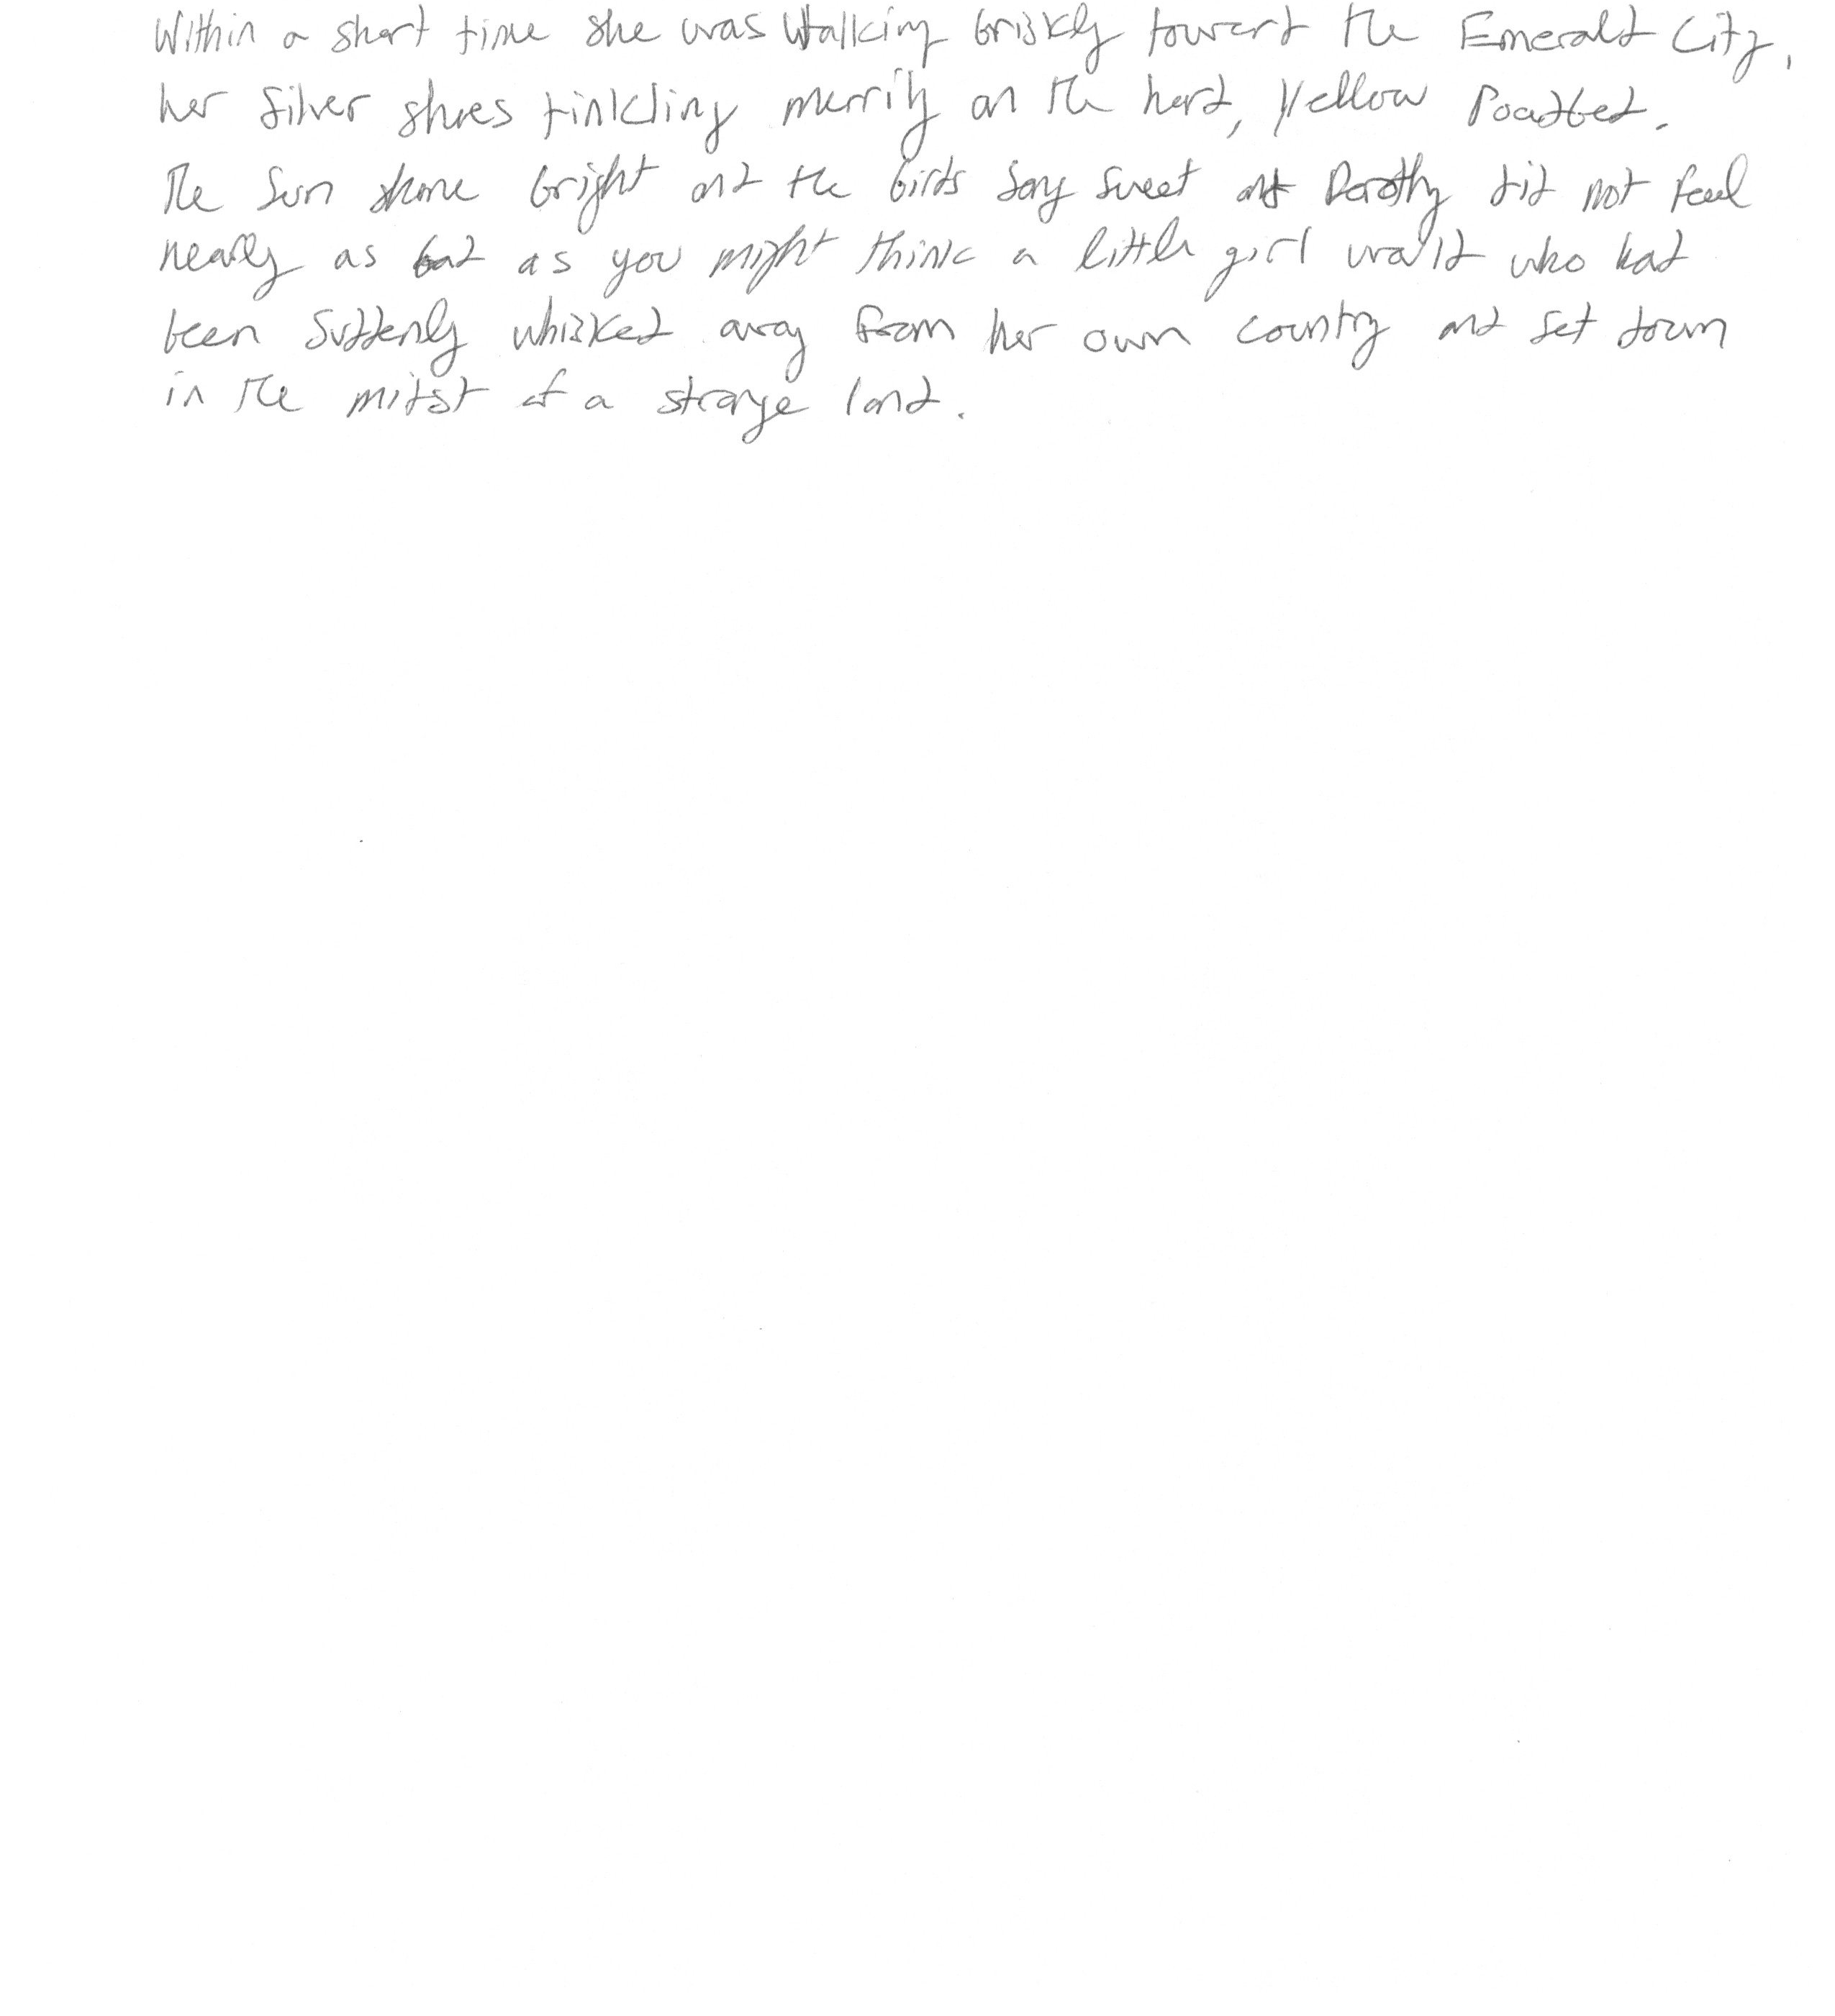 Within a short time she was walking briskly toward the Emerald City,
her Silver shoes tinkling merrily on the hard, yellow Roadbed.
The Sun shone bright and the birds sang sweet and Dorothy did not feel
nearly as bad as you might think a little girl would who had
been suddenly whisked away from her own country and set down
in the midst of a strange land.